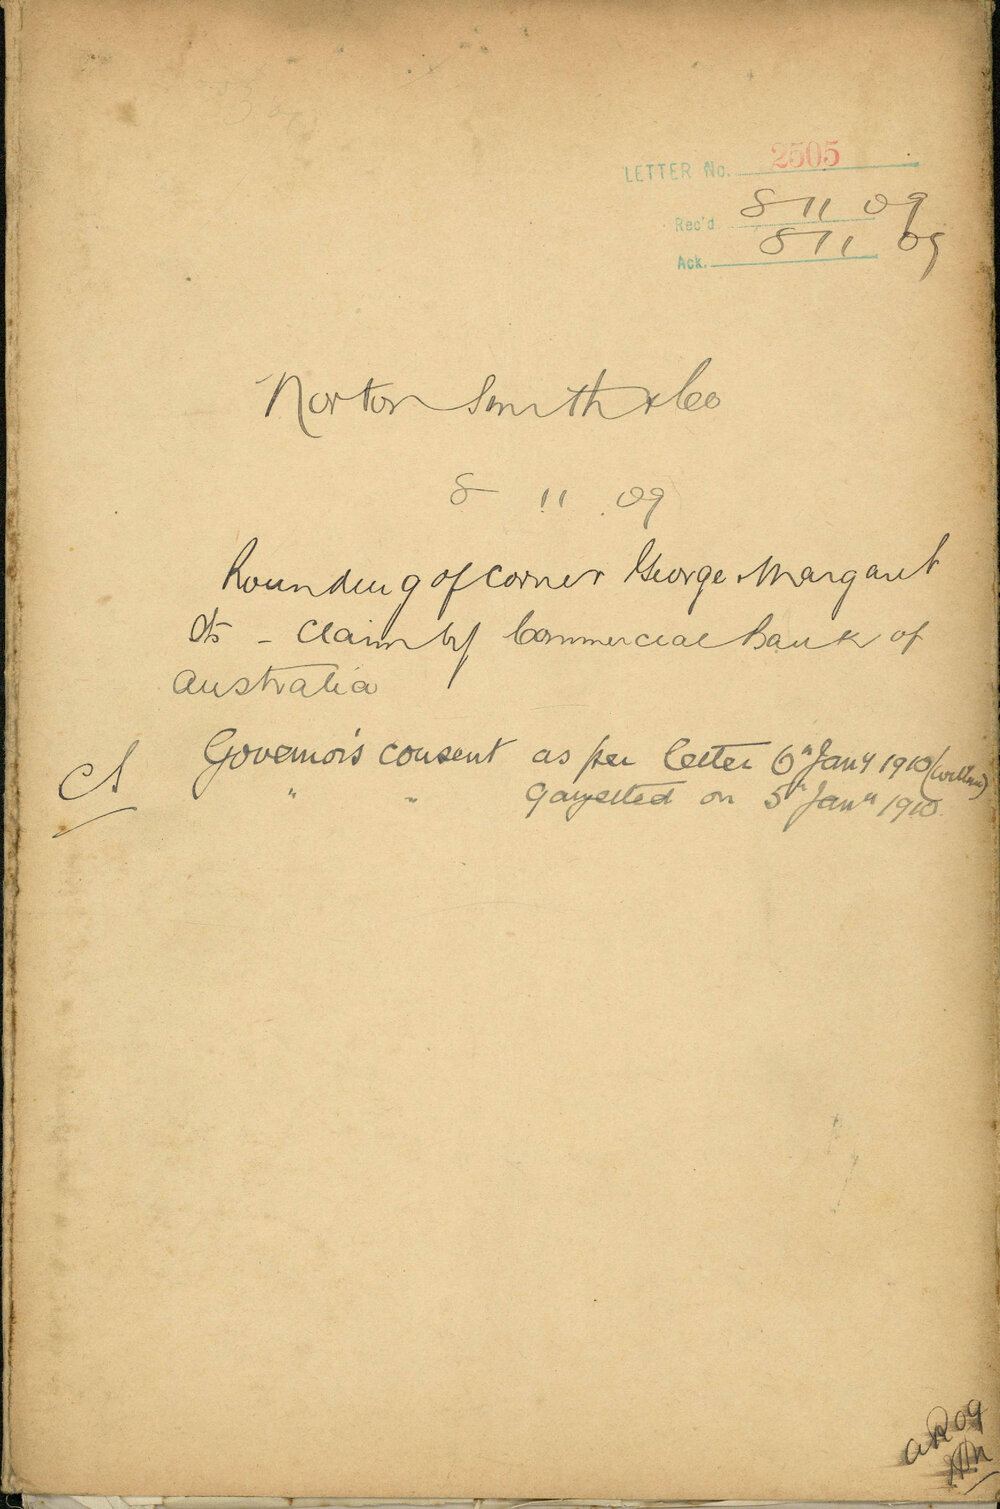 LETTER No. 2505
Rec'd 8 11 09
Ack. 8 11 09
Norton Smith & Co
8 11 09
Rounding of corner George & Margaret
Sts - Claim by Commercial Bank of
Australia
Governor's consent as per letter 6th Jany 1910 (within)
" " gazetted on 5th Jany 1910.